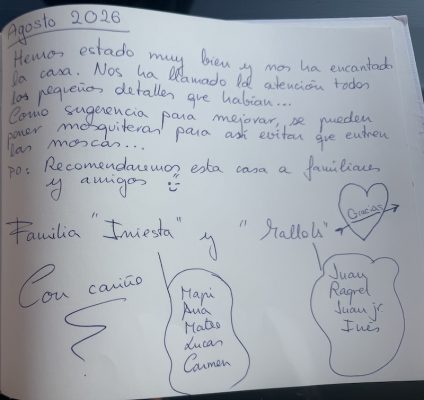 Agosto 2026
Hemos estado muy bien y nos ha encantado
la casa. Nos ha llamado la atención todos
los pequeños detalles que habían...
Como sugerencia para mejorar, se pueden
poner mosquiteras para así evitar que entren
las moscas...
PD: Recomendaremos esta casa a familiares
y amigos
Gracias
Familia "Iniesta" y "Mallols"
Con cariño
Mapi
Ana
Mateo
Lucas
Carmen
Juan
Raquel
Juan jr.
Inés